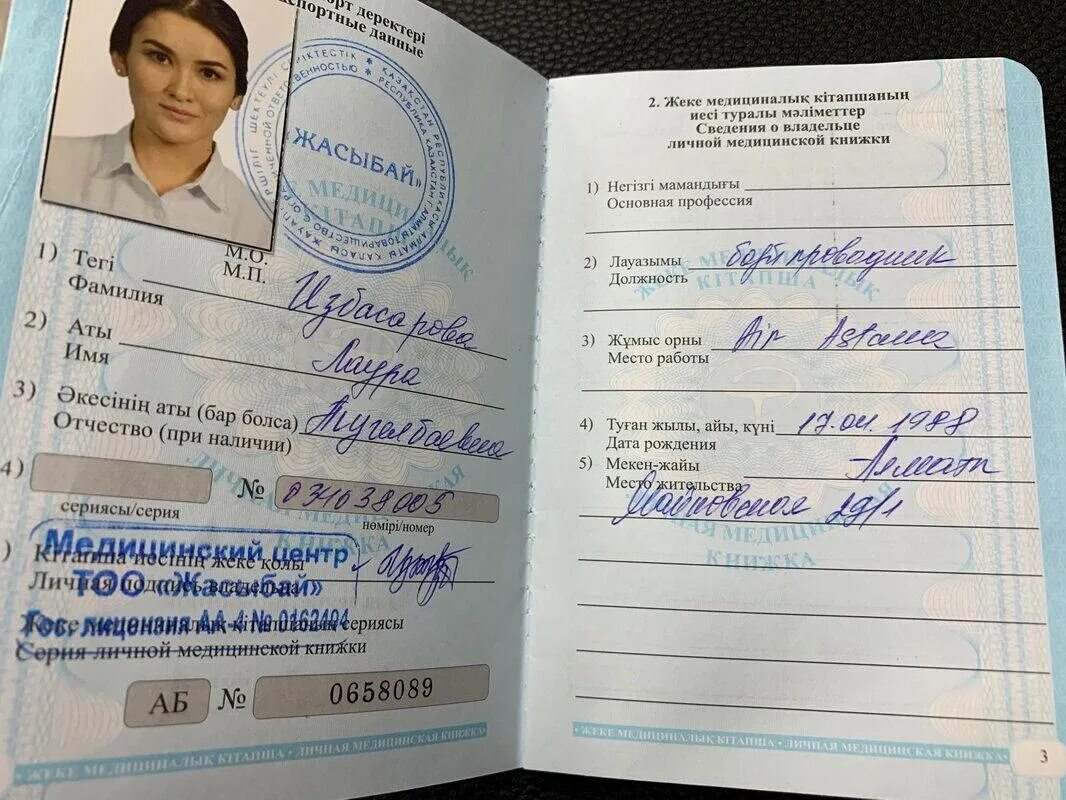 порт деректері
спортные данные
«ЖАСЫБАЙ»
М.О.
М.П.
1) Тегі
Фамилия
Избасарова
2) Аты
Имя
Лаура
3) Әкесінің аты (бар болса)
Отчество (при наличии)
4)
№ 031038005
сериясы/серия
нөмірі/номер
) Кітапша иесінің жеке қолы
Личная подпись владельца
Медицинский центр
ТОО «Жасыбай»
Гос. лицензия АА-4 № 0162404
Жеке медициналық кітапшаның сериясы
Серия личной медицинской книжки
АБ № 0658089
• ЖЕКЕ МЕДИЦИНАЛЫҚ КІТАПША • ЛИЧНАЯ МЕДИЦИНСКАЯ КНИЖКА •
2. Жеке медициналық кітапшаның
иесі туралы мәліметтер
Сведения о владельце
личной медицинской книжки
1) Негізгі мамандығы
Основная профессия
2) Лауазымы бортпроводник
Должность
ЖЕКЕ МЕДИЦИНАЛЫҚ
КІТАПША
3) Жұмыс орны Air Astana
Место работы
4) Туған жылы, айы, күні 17.04.1988
Дата рождения
5) Мекен-жайы Алматы
Место жительства
29/1
ЛИЧНАЯ МЕДИЦИНСКАЯ
КНИЖКА
• ЖЕКЕ МЕДИЦИНАЛЫҚ КІТАПША • ЛИЧНАЯ МЕДИЦИНСКАЯ КНИЖКА •
3